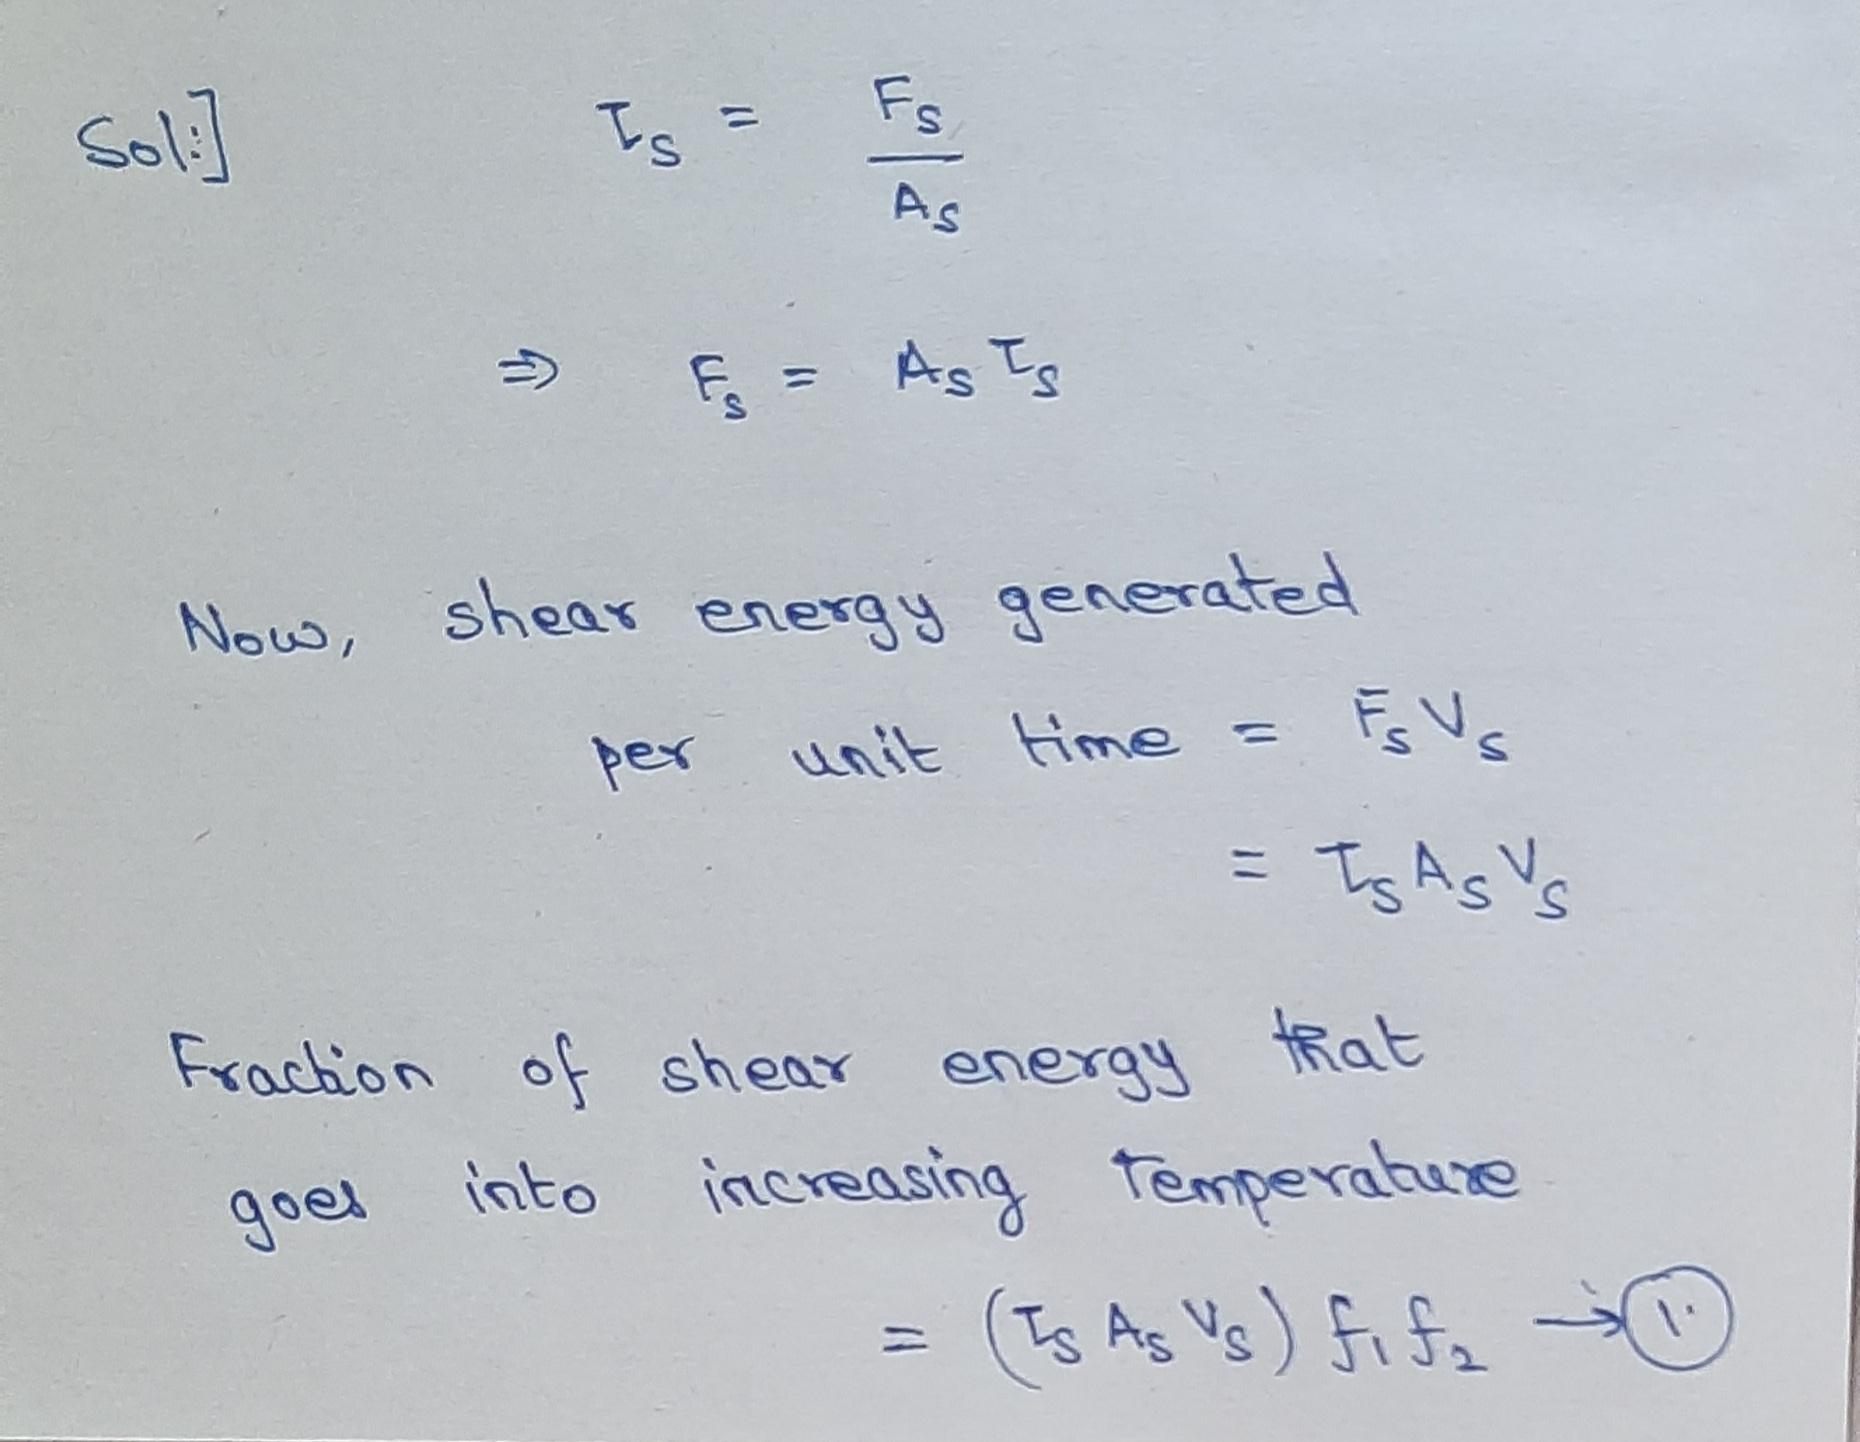 Sol:] τs = Fs / As
⇒ Fs = As τs
Now, shear energy generated
per unit time = Fs Vs
= τs As Vs
Fraction of shear energy that
goes into increasing temperature
= (τs As Vs) f₁ f₂ → ①